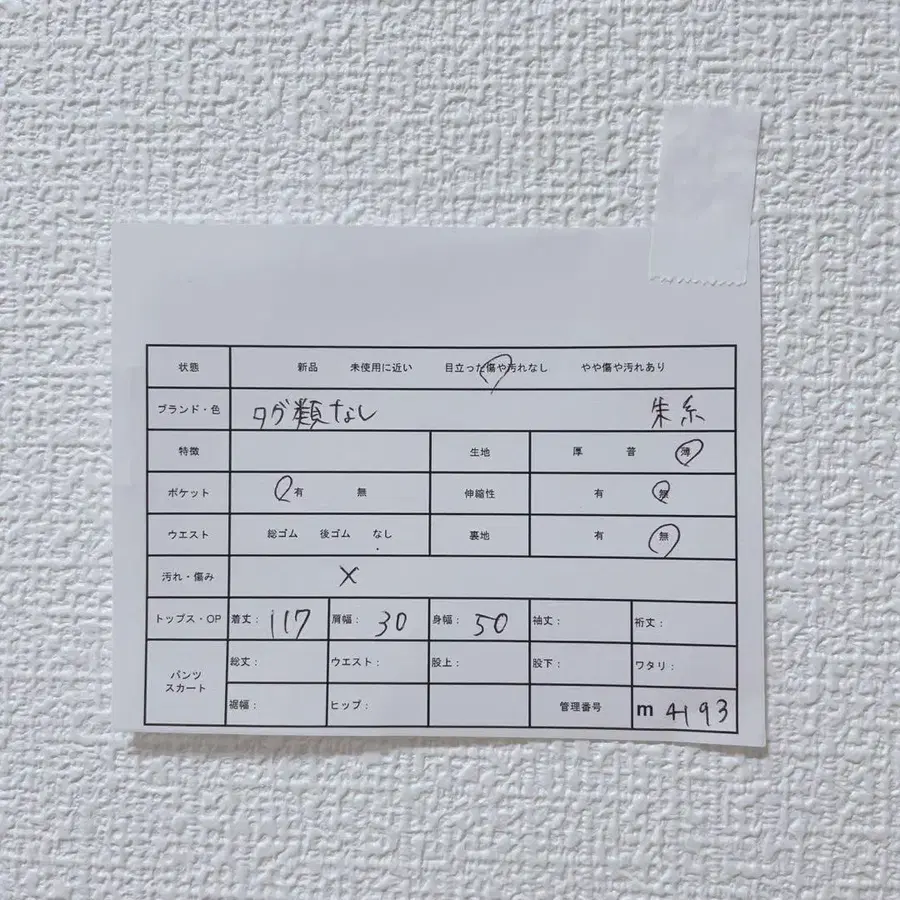 状態 新品 未使用に近い 目立った傷や汚れなし やや傷や汚れあり
ブランド・色 タグ類なし 朱系
特徴 生地 厚 普 薄
ポケット 有 無 伸縮性 有 無
ウエスト 総ゴム 後ゴム なし 裏地 有 無
汚れ・傷み ×
トップス・OP 着丈: 117 肩幅: 30 身幅: 50 袖丈: 裄丈:
パンツ スカート 総丈: ウエスト: 股上: 股下: ワタリ:
裾幅: ヒップ: 管理番号 m 4193